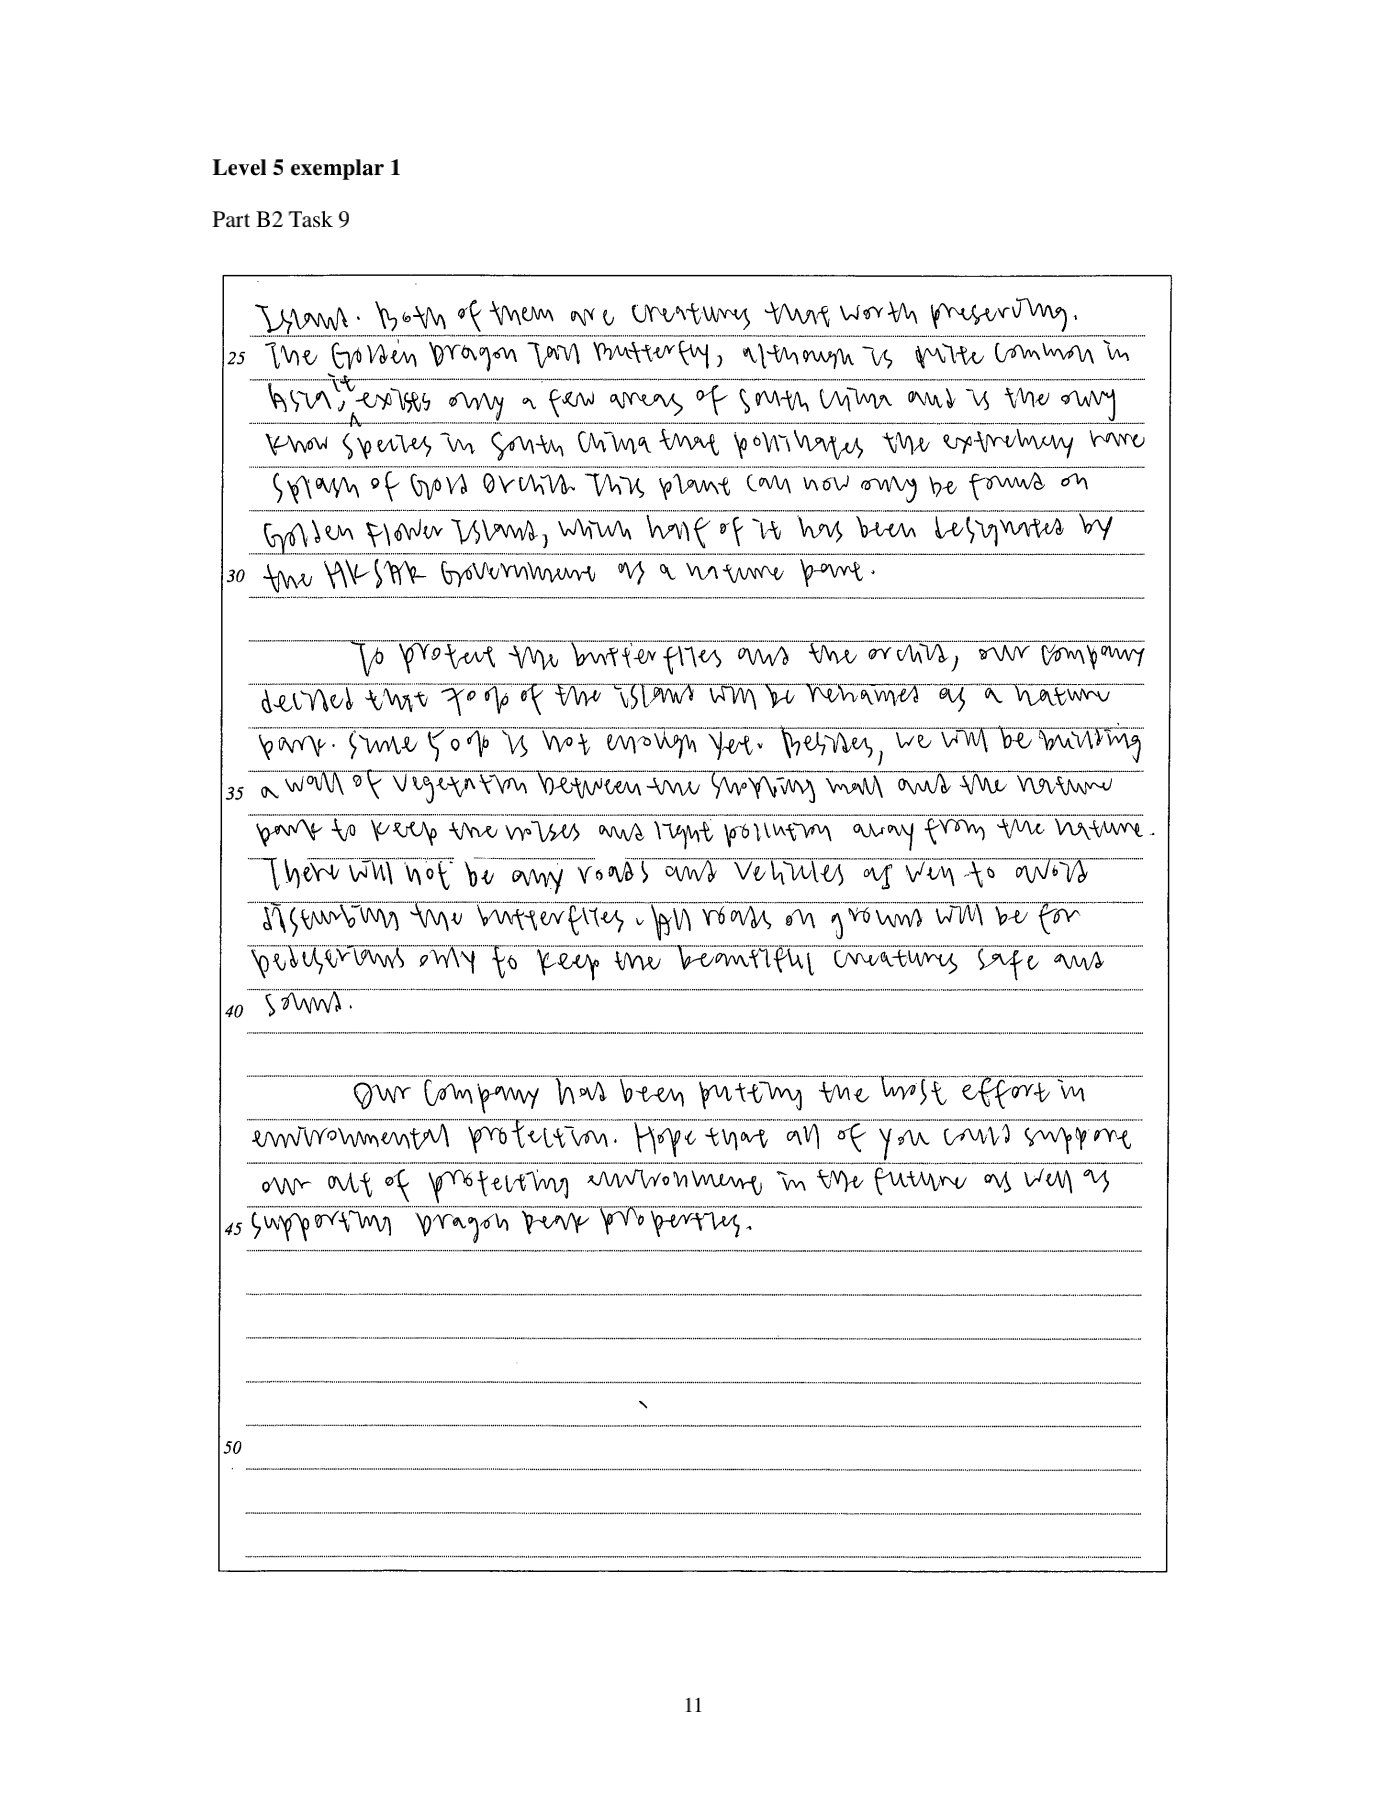 Level 5 exemplar 1
Part B2 Task 9
Island. Both of them are creatures that worth preserving.
25 The Golden Dragon Tail Butterfly, although is quite common in
Asia, it exists only a few areas of South China and is the only
know species in South China that pollinates the extremely rare
Splash of Gold Orchid. This plant can now only be found on
Golden Flower Island, which half of it has been designated by
30 the HKSAR Government as a nature park.
To protect the butterflies and the orchid, our company
decided that 70% of the island will be renamed as a nature
park. Since 50% is not enough yet. Besides, we will be building
35 a wall of vegetation between the shopping mall and the nature
park to keep the noises and light pollution away from the nature.
There will not be any roads and vehicles as well to avoid
disturbing the butterflies. All roads on ground will be for
pedestrians only to keep the beautiful creatures safe and
40 sound.
Our company has been putting the most effort in
environmental protection. Hope that all of you could support
our act of protecting environment in the future as well as
45 supporting Dragon Peak properties.
50
11